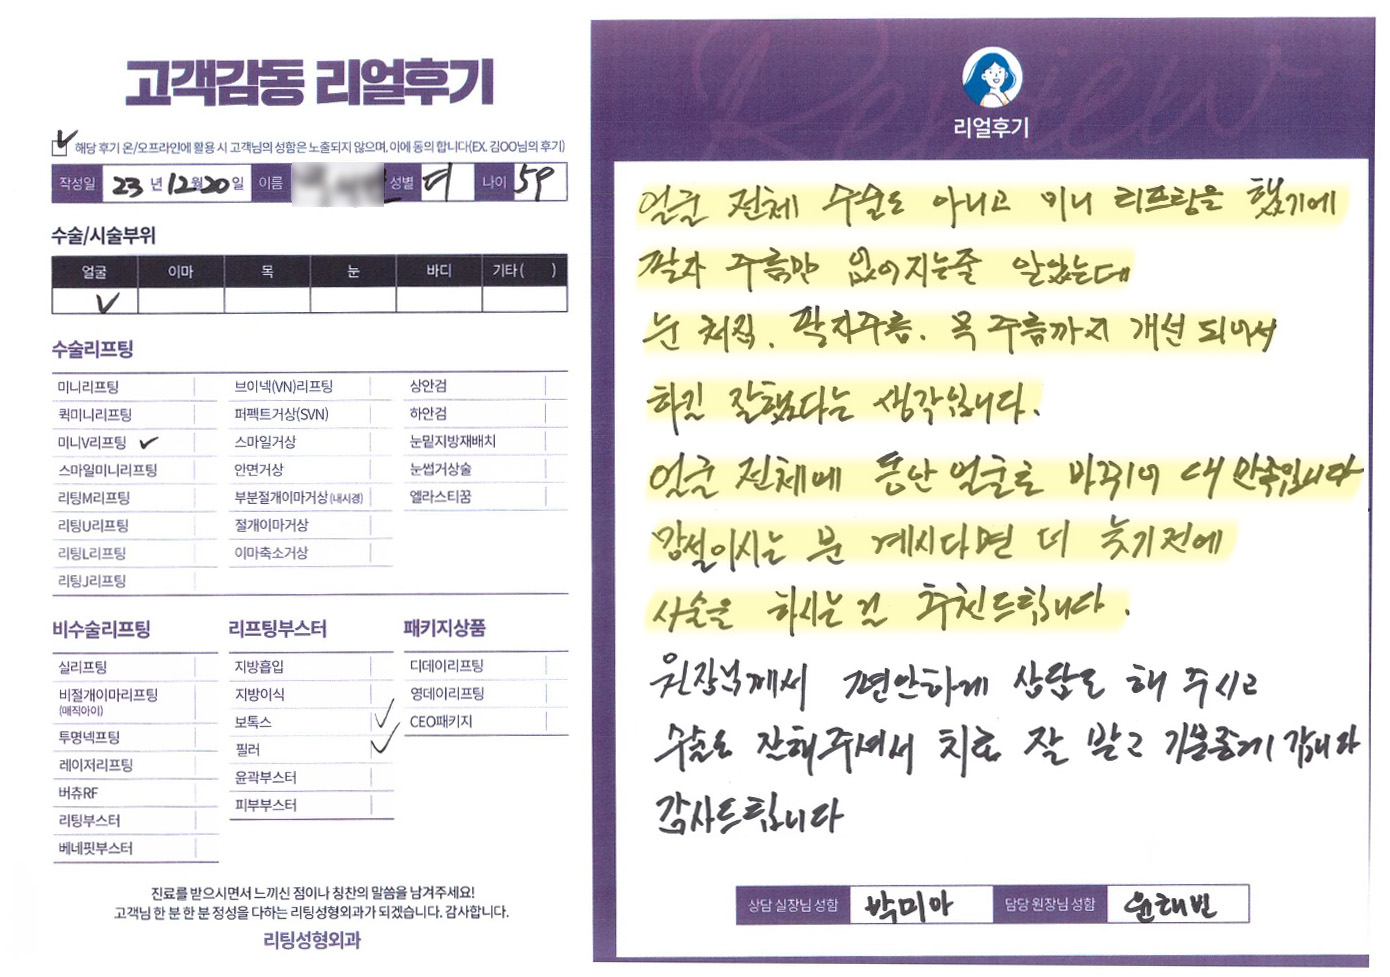 고객감동 리얼후기
✓ 해당 후기 온/오프라인에 활용 시 고객님의 성함은 노출되지 않으며, 이에 동의 합니다(EX. 김OO님의 후기)
작성일 23 년 12 월 20 일 이름 성별 여 나이 59
수술/시술부위
얼굴 이마 목 눈 바디 기타 ( )
✓
수술리프팅
미니리프팅 브이넥(VN)리프팅 상안검
퀵미니리프팅 퍼펙트거상(SVN) 하안검
미니V리프팅 ✓ 스마일거상 눈밑지방재배치
스마일미니리프팅 안면거상 눈썹거상술
리팅M리프팅 부분절개이마거상(내시경) 엘라스티꿈
리팅U리프팅 절개이마거상
리팅L리프팅 이마축소거상
리팅J리프팅
비수술리프팅 리프팅부스터 패키지상품
실리프팅 지방흡입 디데이리프팅
비절개이마리프팅 지방이식 영데이리프팅
(매직아이) 보톡스 ✓ CEO패키지
투명넥프팅 필러 ✓
레이저리프팅 윤곽부스터
버츄RF 피부부스터
리팅부스터
베네핏부스터
진료를 받으시면서 느끼신 점이나 칭찬의 말씀을 남겨주세요!
고객님 한 분 한 분 정성을 다하는 리팅성형외과가 되겠습니다. 감사합니다.
리팅성형외과
Review
리얼후기
얼굴 전체 수술도 아니고 미니 리프팅을 했기에
팔자 주름만 없어지는줄 알았는데
눈 처짐. 팔자주름. 목 주름까지 개선 되어서
하길 잘했다는 생각입니다.
얼굴 전체에 동안 얼굴로 바뀌어 대 만족입니다
망설이시는 분 계시다면 더 늦기전에
시술을 하시는걸 추천드립니다.
원장님께서 편안하게 상담도 해 주시고
수술도 잘해주셔서 치료 잘 받고 기분좋게 갑니다
감사드립니다
상담 실장님 성함 박미아 담당 원장님 성함 윤태빈